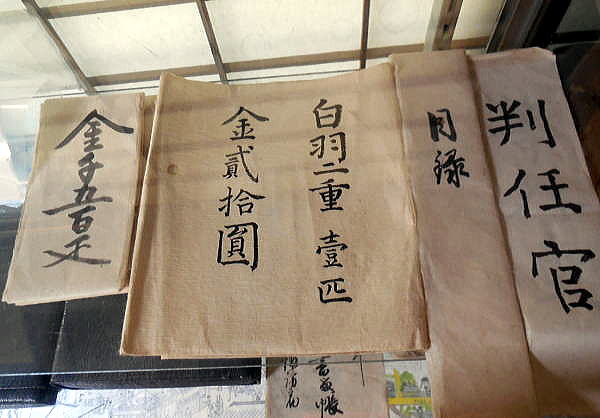 判任官
目録
白羽二重 壹匹
金貳拾圓
金千五百疋